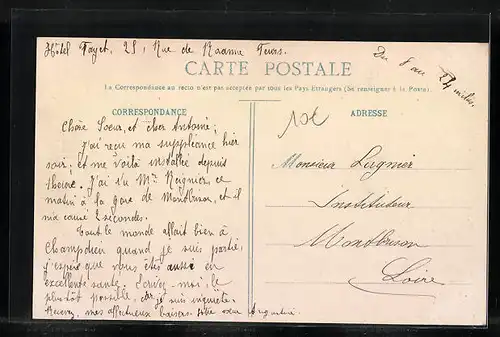 Hôtel Fayet, 25, Rue de Roanne Feurs.
Du 8 au 24 
CARTE POSTALE
La Correspondance au recto n'est pas acceptée par tous les Pays Etrangers (Se renseigner à la Poste).
CORRESPONDANCE
Chère Soeur, et cher Antoine;
J'ai reçu ma suppléance hier
soir; et me voilà installée depuis
J'ai vu Mr. Reignier, ce
matin à la gare de Montbrison, et il
m'a causé 2 secondes.
Tout le monde allait bien à
Champdieu quand je suis partie,
j'espère que vous êtes aussi en
excellente santé. Ecrivez-moi, le
plus tôt possible, car je suis inquiète.
Recevez, mes affectueux baisers. Votre soeur
10€
ADRESSE
Monsieur Lagnier
Instituteur
Montbrison
Loire